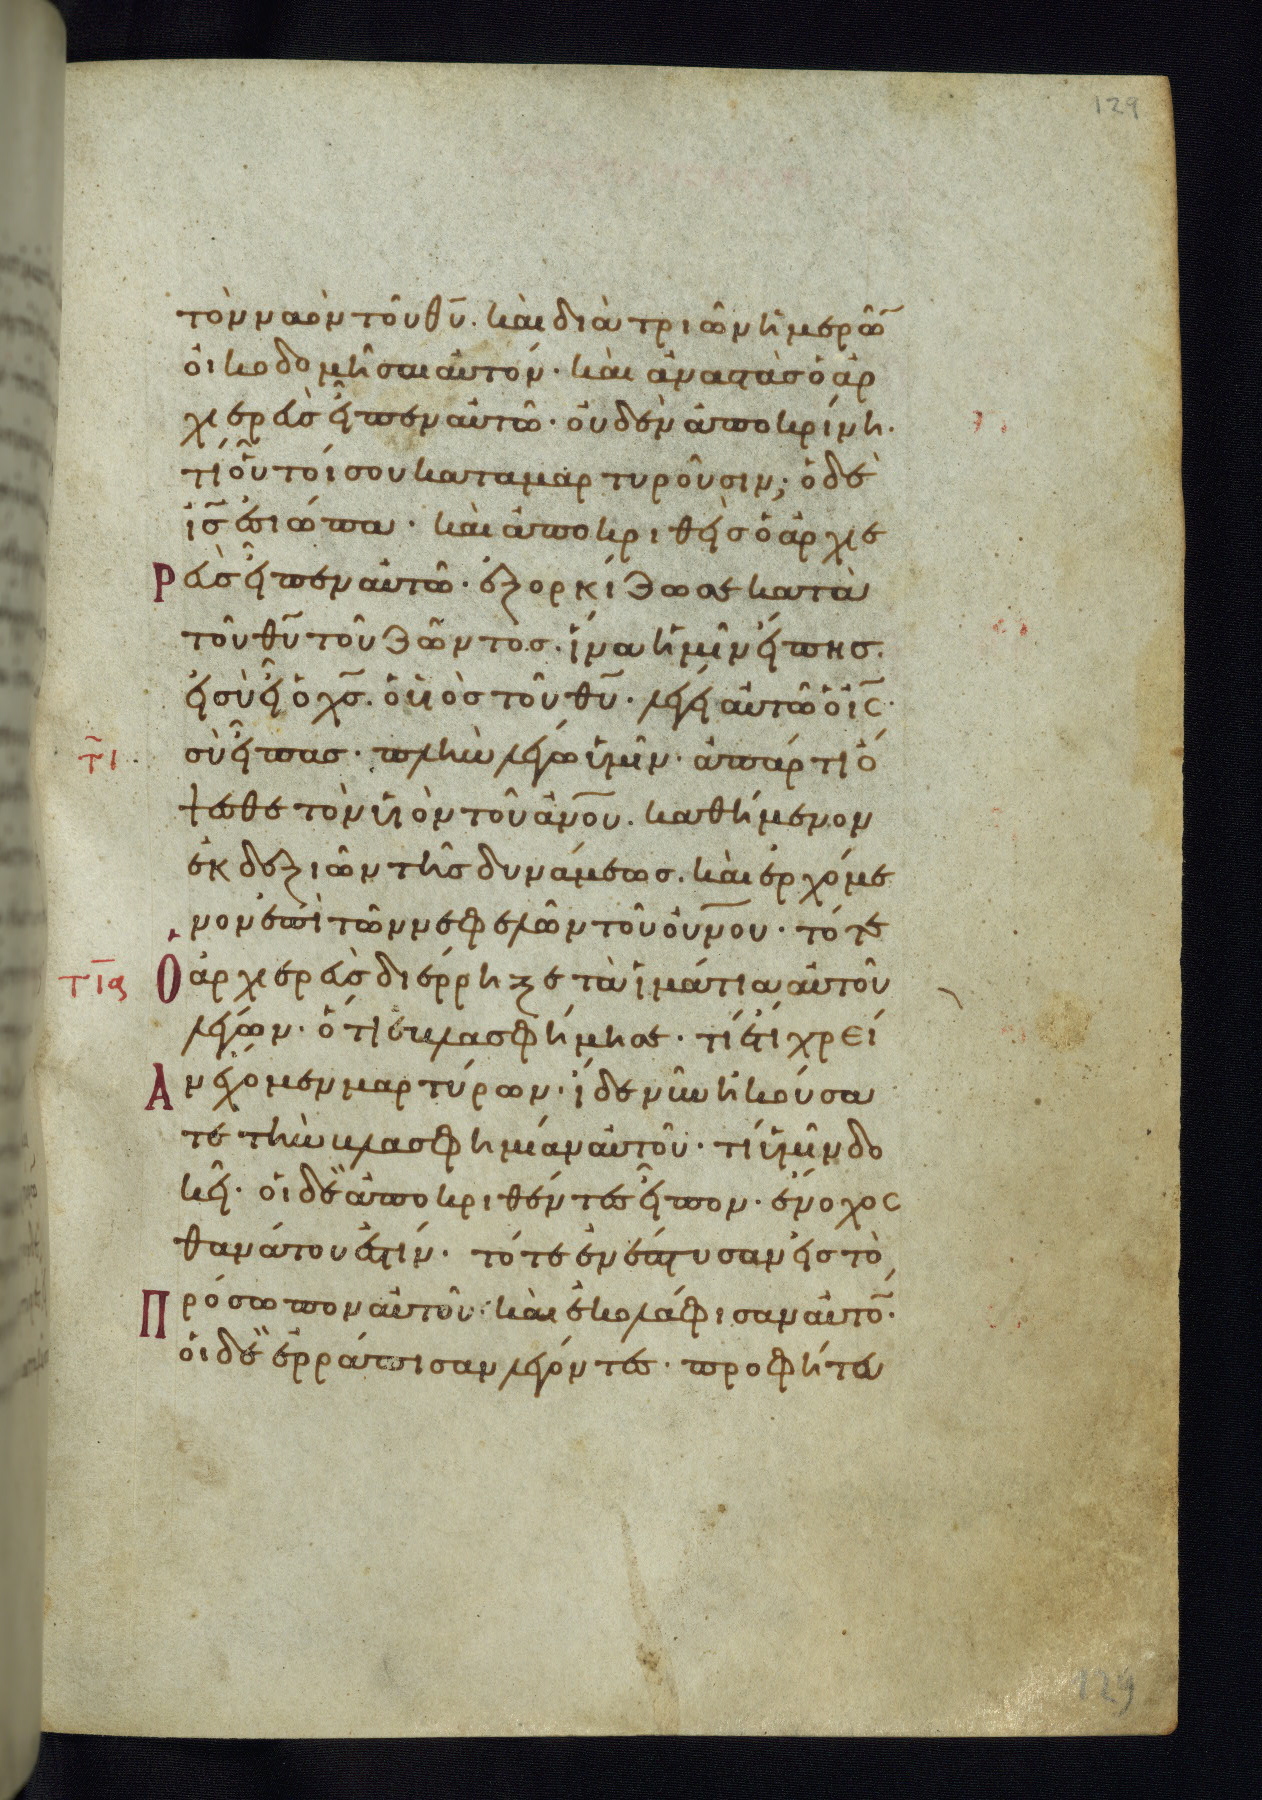 129
τὸν ναὸν τοῦ θ̅υ̅. καὶ διὰ τριῶν ἡμερῶ̅
οἰκοδομῆσαι αὐτόν· καὶ ἀναστὰς ὁ ἀρ
χιερεὺς εἶπεν αὐτῶ· οὐδὲν ἀποκρίνη.
τί οὗτοί σου καταμαρτυροῦσιν; ὁ δὲ
ι̅ς̅ ἐσιώπα· καὶ ἀποκριθεὶς ὁ ἀρχιε
ρεὺς εἶπεν αὐτῶ· ἐξορκίζω σε κατὰ
τοῦ θ̅υ̅ τοῦ ζῶντος. ἵνα ἡμῖν εἴπης.
εἰ σὺ εἶ ὁ χ̅ς̅. ὁ υἱὸς τοῦ θ̅υ̅· λέγει αὐτῶ ὁ ι̅ς̅·
τ̅ι̅ σὺ εἶπας· πλὴν λέγω ὑμῖν· ἀπάρτι ὄ
ψεσθε τὸν υἱὸν τοῦ α̅ν̅ο̅υ̅. καθήμενον
ἐκ δεξιῶν τῆς δυνάμεως. καὶ ἐρχόμε
νον ἐπὶ τῶν νεφελῶν τοῦ ο̅υ̅ν̅ο̅υ̅· τότε
τ̅ι̅ϛ ὁ ἀρχιερεὺς διέρρηξε τὰ ἱμάτια αὐτοῦ
λέγων· ὅτι ἐβλασφήμησε· τί ἔτι χρεί
αν ἔχομεν μαρτύρων· ἴδε νῦν ἠκούσα
τε τὴν βλασφημίαν αὐτοῦ· τί ὑμῖν δο
κεῖ· οἱ δὲ ἀποκριθέντες εἶπον· ἔνοχος
θανάτου ἐστίν· τότε ἐνέπτυσαν εἰς τὸ
πρόσωπον αὐτοῦ· καὶ ἐκολάφισαν αὐτὸ̅·
οἱ δὲ ἐρράπισαν λέγοντες· προφήτευ
129